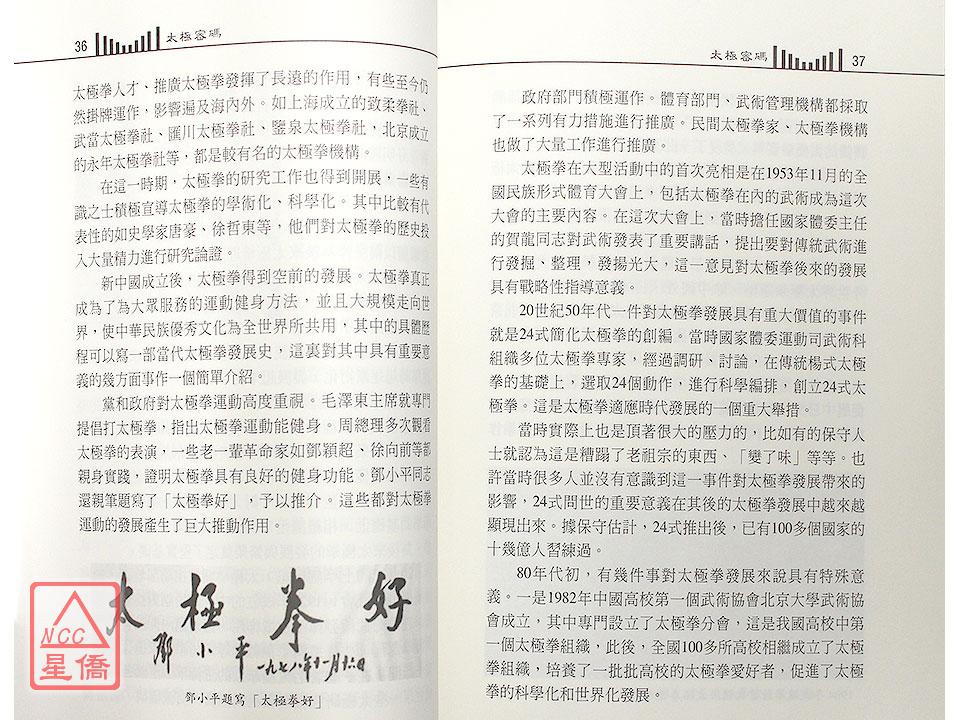 36 太極密碼
太極拳人才、推廣太極拳發揮了長遠的作用，有些至今仍
然掛牌運作，影響遍及海內外。如上海成立的致柔拳社、
武當太極拳社、匯川太極拳社、鑒泉太極拳社，北京成立
的永年太極拳社等，都是較有名的太極拳機構。
在這一時期，太極拳的研究工作也得到開展，一些有
識之士積極宣導太極拳的學術化、科學化。其中比較有代
表性的如史學家唐豪、徐哲東等，他們對太極拳的歷史投
入大量精力進行研究論證。
新中國成立後，太極拳得到空前的發展。太極拳真正
成為了為大眾服務的運動健身方法，並且大規模走向世
界，使中華民族優秀文化為全世界所共用，其中的具體歷
程可以寫一部當代太極拳發展史，這裏對其中具有重要意
義的幾方面事作一個簡單介紹。
黨和政府對太極拳運動高度重視。毛澤東主席就專門
提倡打太極拳，指出太極拳運動能健身。周總理多次觀看
太極拳的表演，一些老一輩革命家如鄧穎超、徐向前等都
親身實踐，證明太極拳具有良好的健身功能。鄧小平同志
還親筆題寫了「太極拳好」，予以推介。這些都對太極拳
運動的發展產生了巨大推動作用。
太極拳好
鄧小平
一九七八年十一月十六日
鄧小平題寫「太極拳好」
NCC
星僑
太極密碼 37
政府部門積極運作。體育部門、武術管理機構都採取
了一系列有力措施進行推廣。民間太極拳家、太極拳機構
也做了大量工作進行推廣。
太極拳在大型活動中的首次亮相是在1953年11月的全
國民族形式體育大會上，包括太極拳在內的武術成為這次
大會的主要內容。在這次大會上，當時擔任國家體委主任
的賀龍同志對武術發表了重要講話，提出要對傳統武術進
行發掘、整理，發揚光大，這一意見對太極拳後來的發展
具有戰略性指導意義。
20世紀50年代一件對太極拳發展具有重大價值的事件
就是24式簡化太極拳的創編。當時國家體委運動司武術科
組織多位太極拳專家，經過調研、討論，在傳統楊式太極
拳的基礎上，選取24個動作，進行科學編排，創立24式太
極拳。這是太極拳適應時代發展的一個重大舉措。
當時實際上也是頂著很大的壓力的，比如有的保守人
士就認為這是糟蹋了老祖宗的東西、「變了味」等等。也
許當時很多人並沒有意識到這一事件對太極拳發展帶來的
影響，24式問世的重要意義在其後的太極拳發展中越來越
顯現出來。據保守估計，24式推出後，已有100多個國家的
十幾億人習練過。
80年代初，有幾件事對太極拳發展來說具有特殊意
義。一是1982年中國高校第一個武術協會北京大學武術協
會成立，其中專門設立了太極拳分會，這是我國高校中第
一個太極拳組織，此後，全國100多所高校相繼成立了太極
拳組織，培養了一批批高校的太極拳愛好者，促進了太極
拳的科學化和世界化發展。